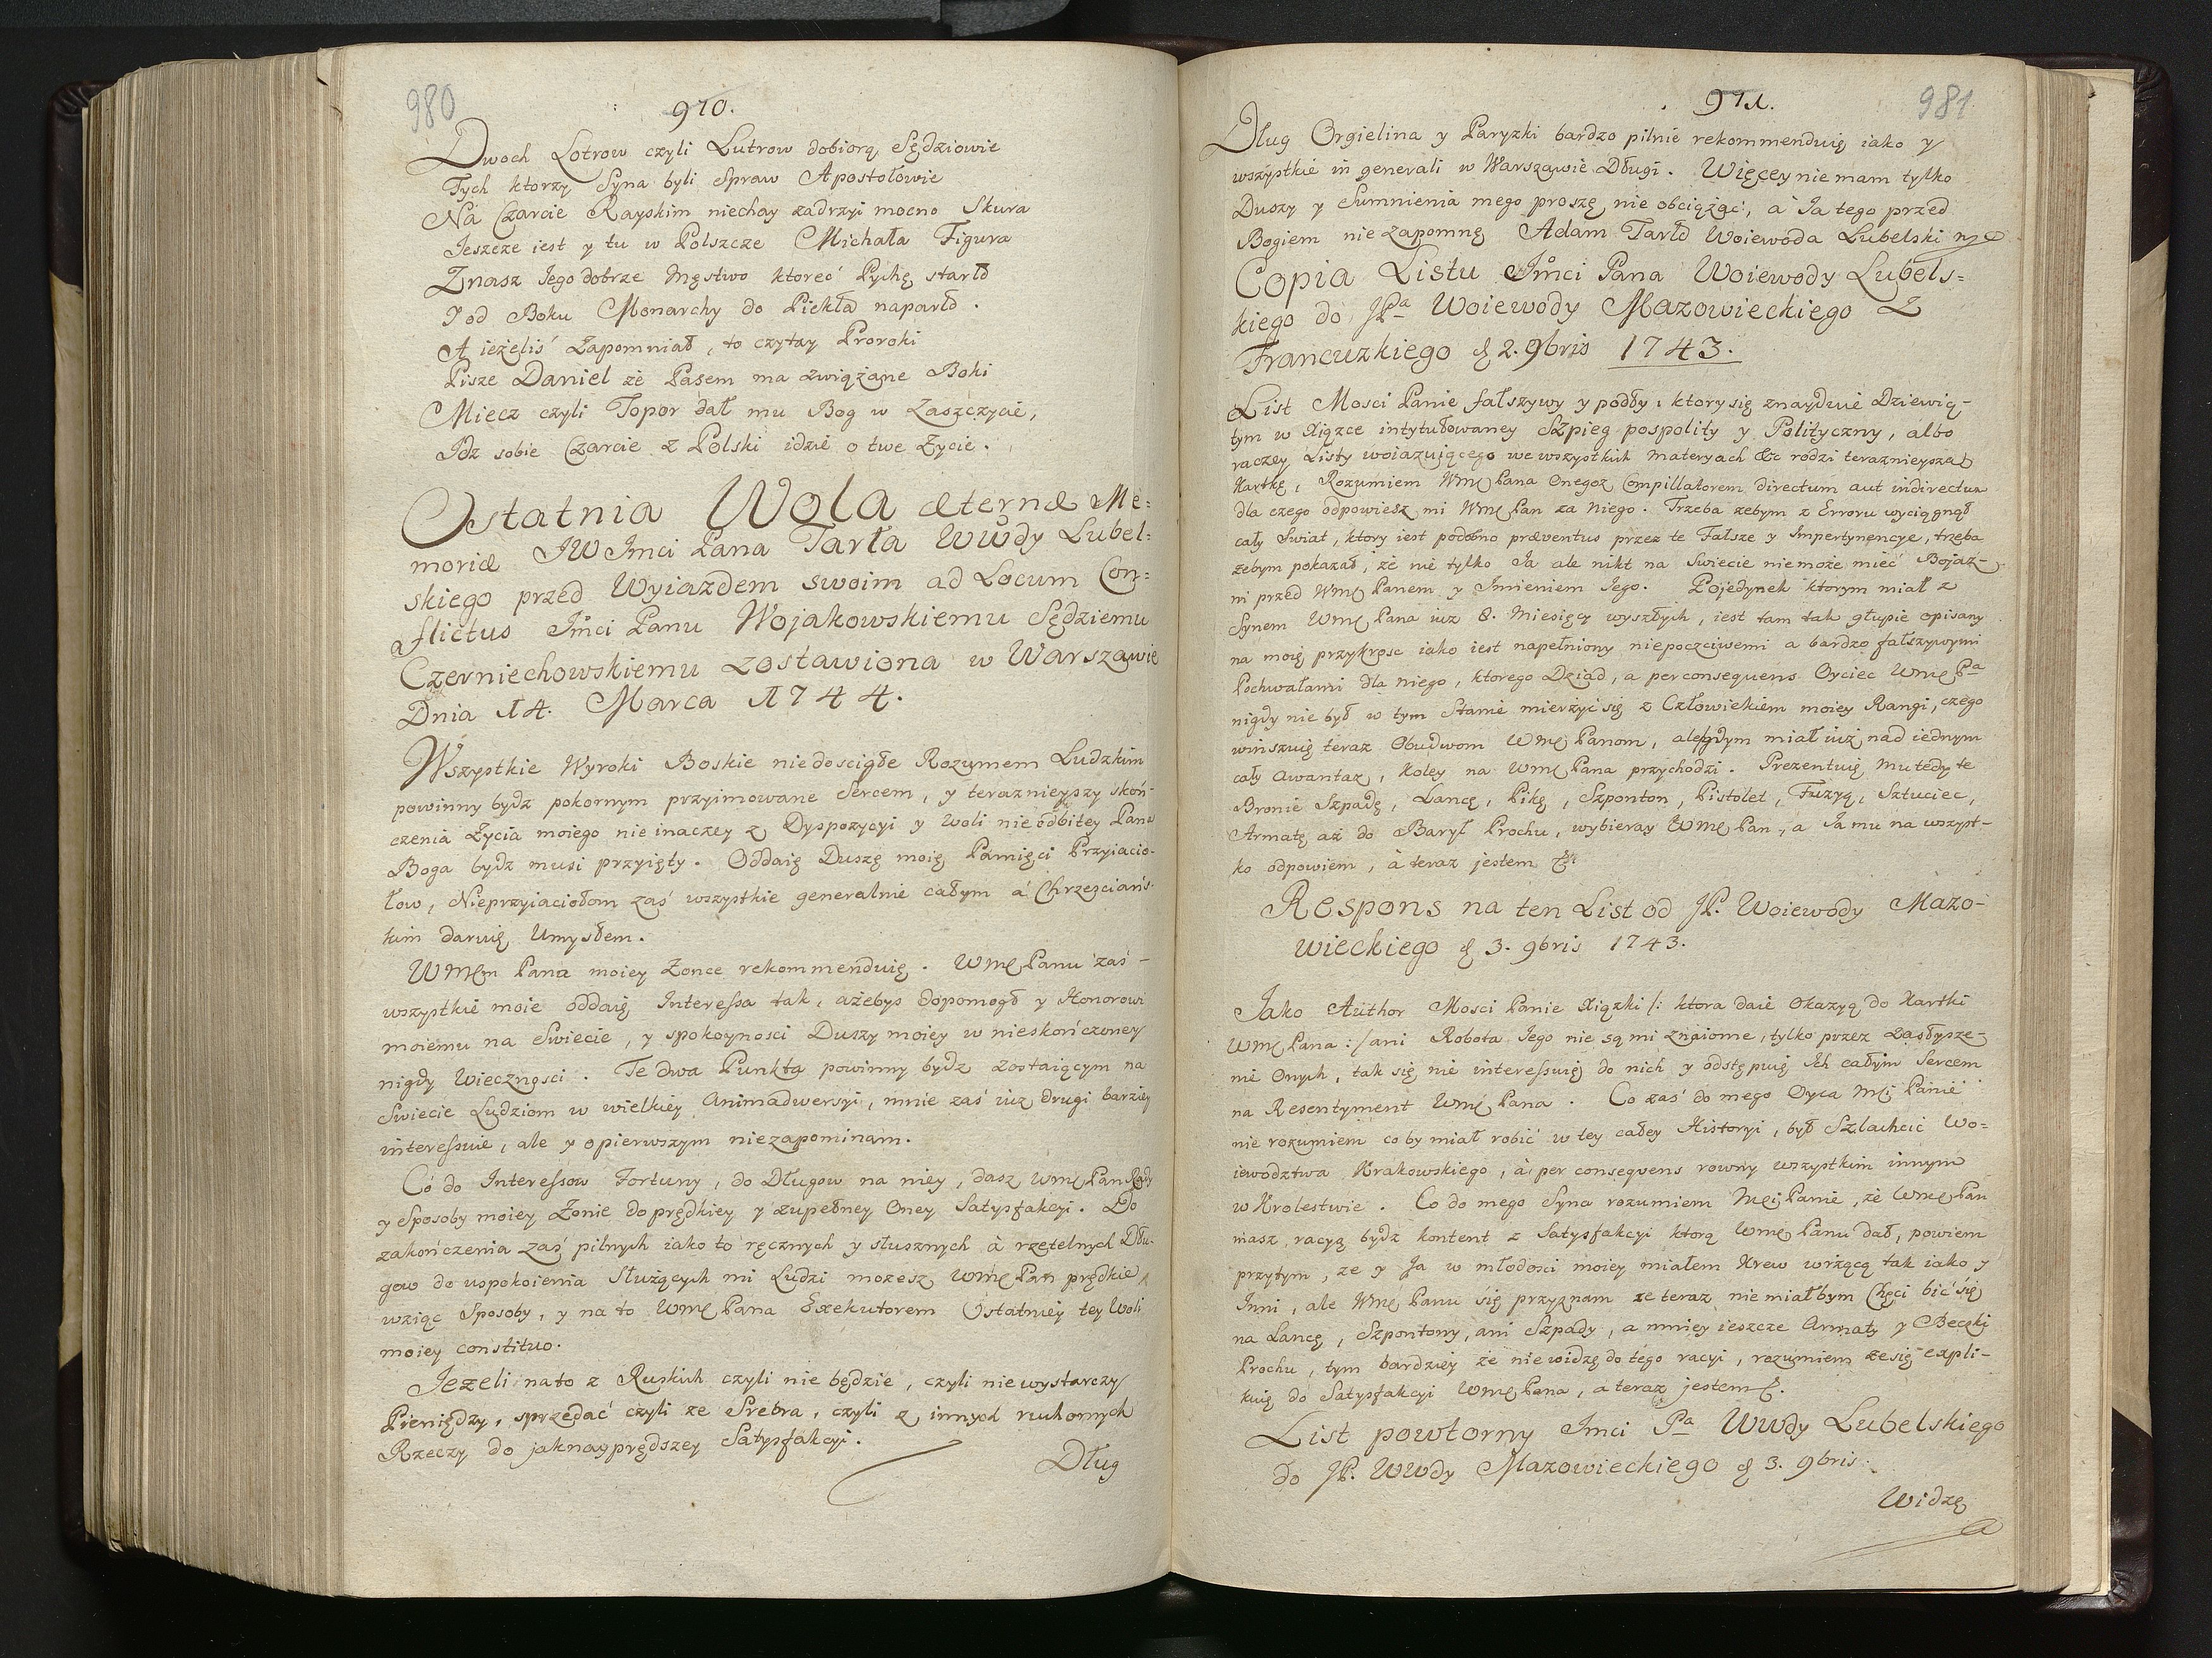 980
970.
Dwoch Łotrow czyli Lutrow dobiorą Sędziowie
Tych ktorzy Syna byli Spraw Apostołowie
Na Czarcie Rayskim niechay zadrzyi mocno Skura
Jeszcze iest y tu w Polszcze Michała Figura
Znasz Jego dobrze męstwo ktoreć Pychę starło
Y od Boku Monarchy do Piekła naparło.
A ieżeliś zapomniał, to czytay Proroki
Pisze Daniel że Pasem ma związane Boki
Miecz czyli Topor dał mu Bog w Zaszczycie,
Idz sobie Czarcie z Polski idzie o twe Zycie.
Ostatnia Wola æternæ Me=
moriæ JW Jmci Pana Tarła Wwdy Lubel=
skiego przed Wyiazdem swoim ad Locum Con=
flictus Jmci Panu Wojakowskiemu Sędziemu
Czerniechowskiemu zostawiona w Warszawie
Dnia 14. Marca 1744.
Wszystkie Wyroki Boskie niedoscigłe Rozumem Ludzkim
powinny bydz pokornym przyimowane Sercem, y teraznieyszy skoń-
czenia Zycia moiego nieinaczey z Dyspozycyi y woli nieodbitey Pana
Boga bydz musi przyięty. Oddaię Duszę moię Pamięci Przyiacio-
łow, Nieprzyiaciołom zaś wszystkie generalnie całym a Chrzescians-
kim daruię Umysłem.
WMęm Pana moiey Zonce rekommenduię. WMę Panu zaś -
wszystkie moie oddaię Interessa tak, ażebys dopomogł y Honorowi
moiemu na Swiecie, y spokoynosci Duszy moiey w nieskończoney
nigdy Wiecznosci. Te dwa Punkta powinny bydz zostaiącym na
Swiecie Ludziom w wielkiey Animadwersyi, mnie zaś iuz drugi barziey
interessuie, ale y o pierwszym niezapominam.
Co do Interessow Fortuny, do Długow na niey, dasz WMę Pan Rady
y Sposoby moiey Zonie do prędkiey y zupełney Oney Satysfakcyi. Do
zakończenia zaś pilnych iako to ręcznych y słusznych à rzetelnych Dłu-
gow do uspokoienia Służących mi Ludzi mozesz WMę Pan prędkie
wziąc Sposoby, y na to WMę Pana Exekutorem Ostatniey tey Woli
moiey constituo.
Jezeli na to z Ruskich czyli nie będzie, czyli nie wystarczy
Pieniędzy, sprzedać czyli ze Srebra, czyli z innych ruchomych
Rzeczy do jaknayprędszey Satysfakcyi.
Dług
971.
981
Dług Orgielina y Paryzki bardzo pilnie rekommenduię iako y
wszystkie in generali w Warszawie Długi. Więcey nie mam tylko
Duszy y Sumnienia mego proszę nie obciążać, a Ja tego przed
Bogiem nie zapomnę Adam Tarło Woiewoda Lubelski mp
Copia Listu Jmci Pana Woiewody Lubels=
kiego do JPa Woiewody Mazowieckiego Z
Francuzkiego d 2. 9bris 1743.
List Mosci Panie fałszywy y podły, ktory się znayduie Dziewią-
tym w Xiązce intytułowaney Szpieg pospolity y Polityczny, albo
raczey Listy woiazuiącego we wszystkich materyach &c rodzi teraznieyszą
Kartkę, Rozumiem WMę Pana Onegoz Compillatorem directum aut indirectum
dla czego odpowiesz mi WMę Pan za niego. Trzeba zebym z Erroru wyciągnął
cały Swiat, ktory iest podobno præventus przez te Fałsze y Impertynencye, trzeba
zebym pokazał, że nie tylko Ja ale nikt na Swiecie niemoże mieć Bojaz-
ni przed WMę Panem y Imieniem Jego. Pojedynek ktorym miał z
Synem WMę Pana iuz 8. Miesięcy wyszłych, iest tam tak głupie opisany
na moię przykrosc iako iest napełniony niepoczciwemi a bardzo fałszywymi
Pochwałami dla niego, ktorego Dziad, a per consequens Oyciec WMę Pa
nigdy nie był w tym Stanie mierzyć się z Człowiekiem moiey Rangi, czego
winszuię teraz Obudwom WMę Panom, ale gdym miał iuż nad iednym
cały awantaz, koley na WMę Pana przychodzi. Prezentuię mu tedy te
Bronie Szpadę, Lancę, Pikę, Szponton, Pistolet, Fuzyą, Sztuciec,
Armatę aż do Barył Prochu, wybieray WMę Pan, a Ja mu na wszyst-
ko odpowiem, à teraz jestem &c
Respons na ten List od JP. Woiewody Mazo-
wieckiego d 3. 9bris 1743.
Jako Author Mosci Panie Xiązki /: ktora daie okazyą do Kartki
WMę Pana :/ ani Robota Jego nie są mi znaiome, tylko przez zasłysze-
nie Onych, tak się nie interessuię do nich y odstępuię Ich całym Sercem
na Resentyment WMę Pana. Co zaś do mego Oyca Mci Panie
nie rozumiem co by miał robić w tey całey Historyi, był Szlachcic Wo-
iewodztwa Krakowskiego, à per consequens rowny wszystkim innym
w Krolestwie. Co do mego Syna rozumiem Mci Panie, że WMę Pan
masz racyą bydz kontent z Satysfakcyi ktorą WMę Panu dał, powiem
przytym, ze y Ja w młodości moiey miałem Krew wrzącą tak iako y
Inni, ale WMę Panu się przyznam ze teraz nie miałbym Chęci bić się
na Lancę, Szpontony, ani Szpady, a mniey ieszcze Armaty y Beczki
Prochu, tym bardziey że nie widzę do tego racyi, rozumiem ze się expli-
kuię do Satysfakcyi WMę Pana, a teraz jestem &c.
List powtorny Jmci Pa Wwdy Lubelskiego
do JP. Wwdy Mazowieckiego d 3. 9bris.
Widzę